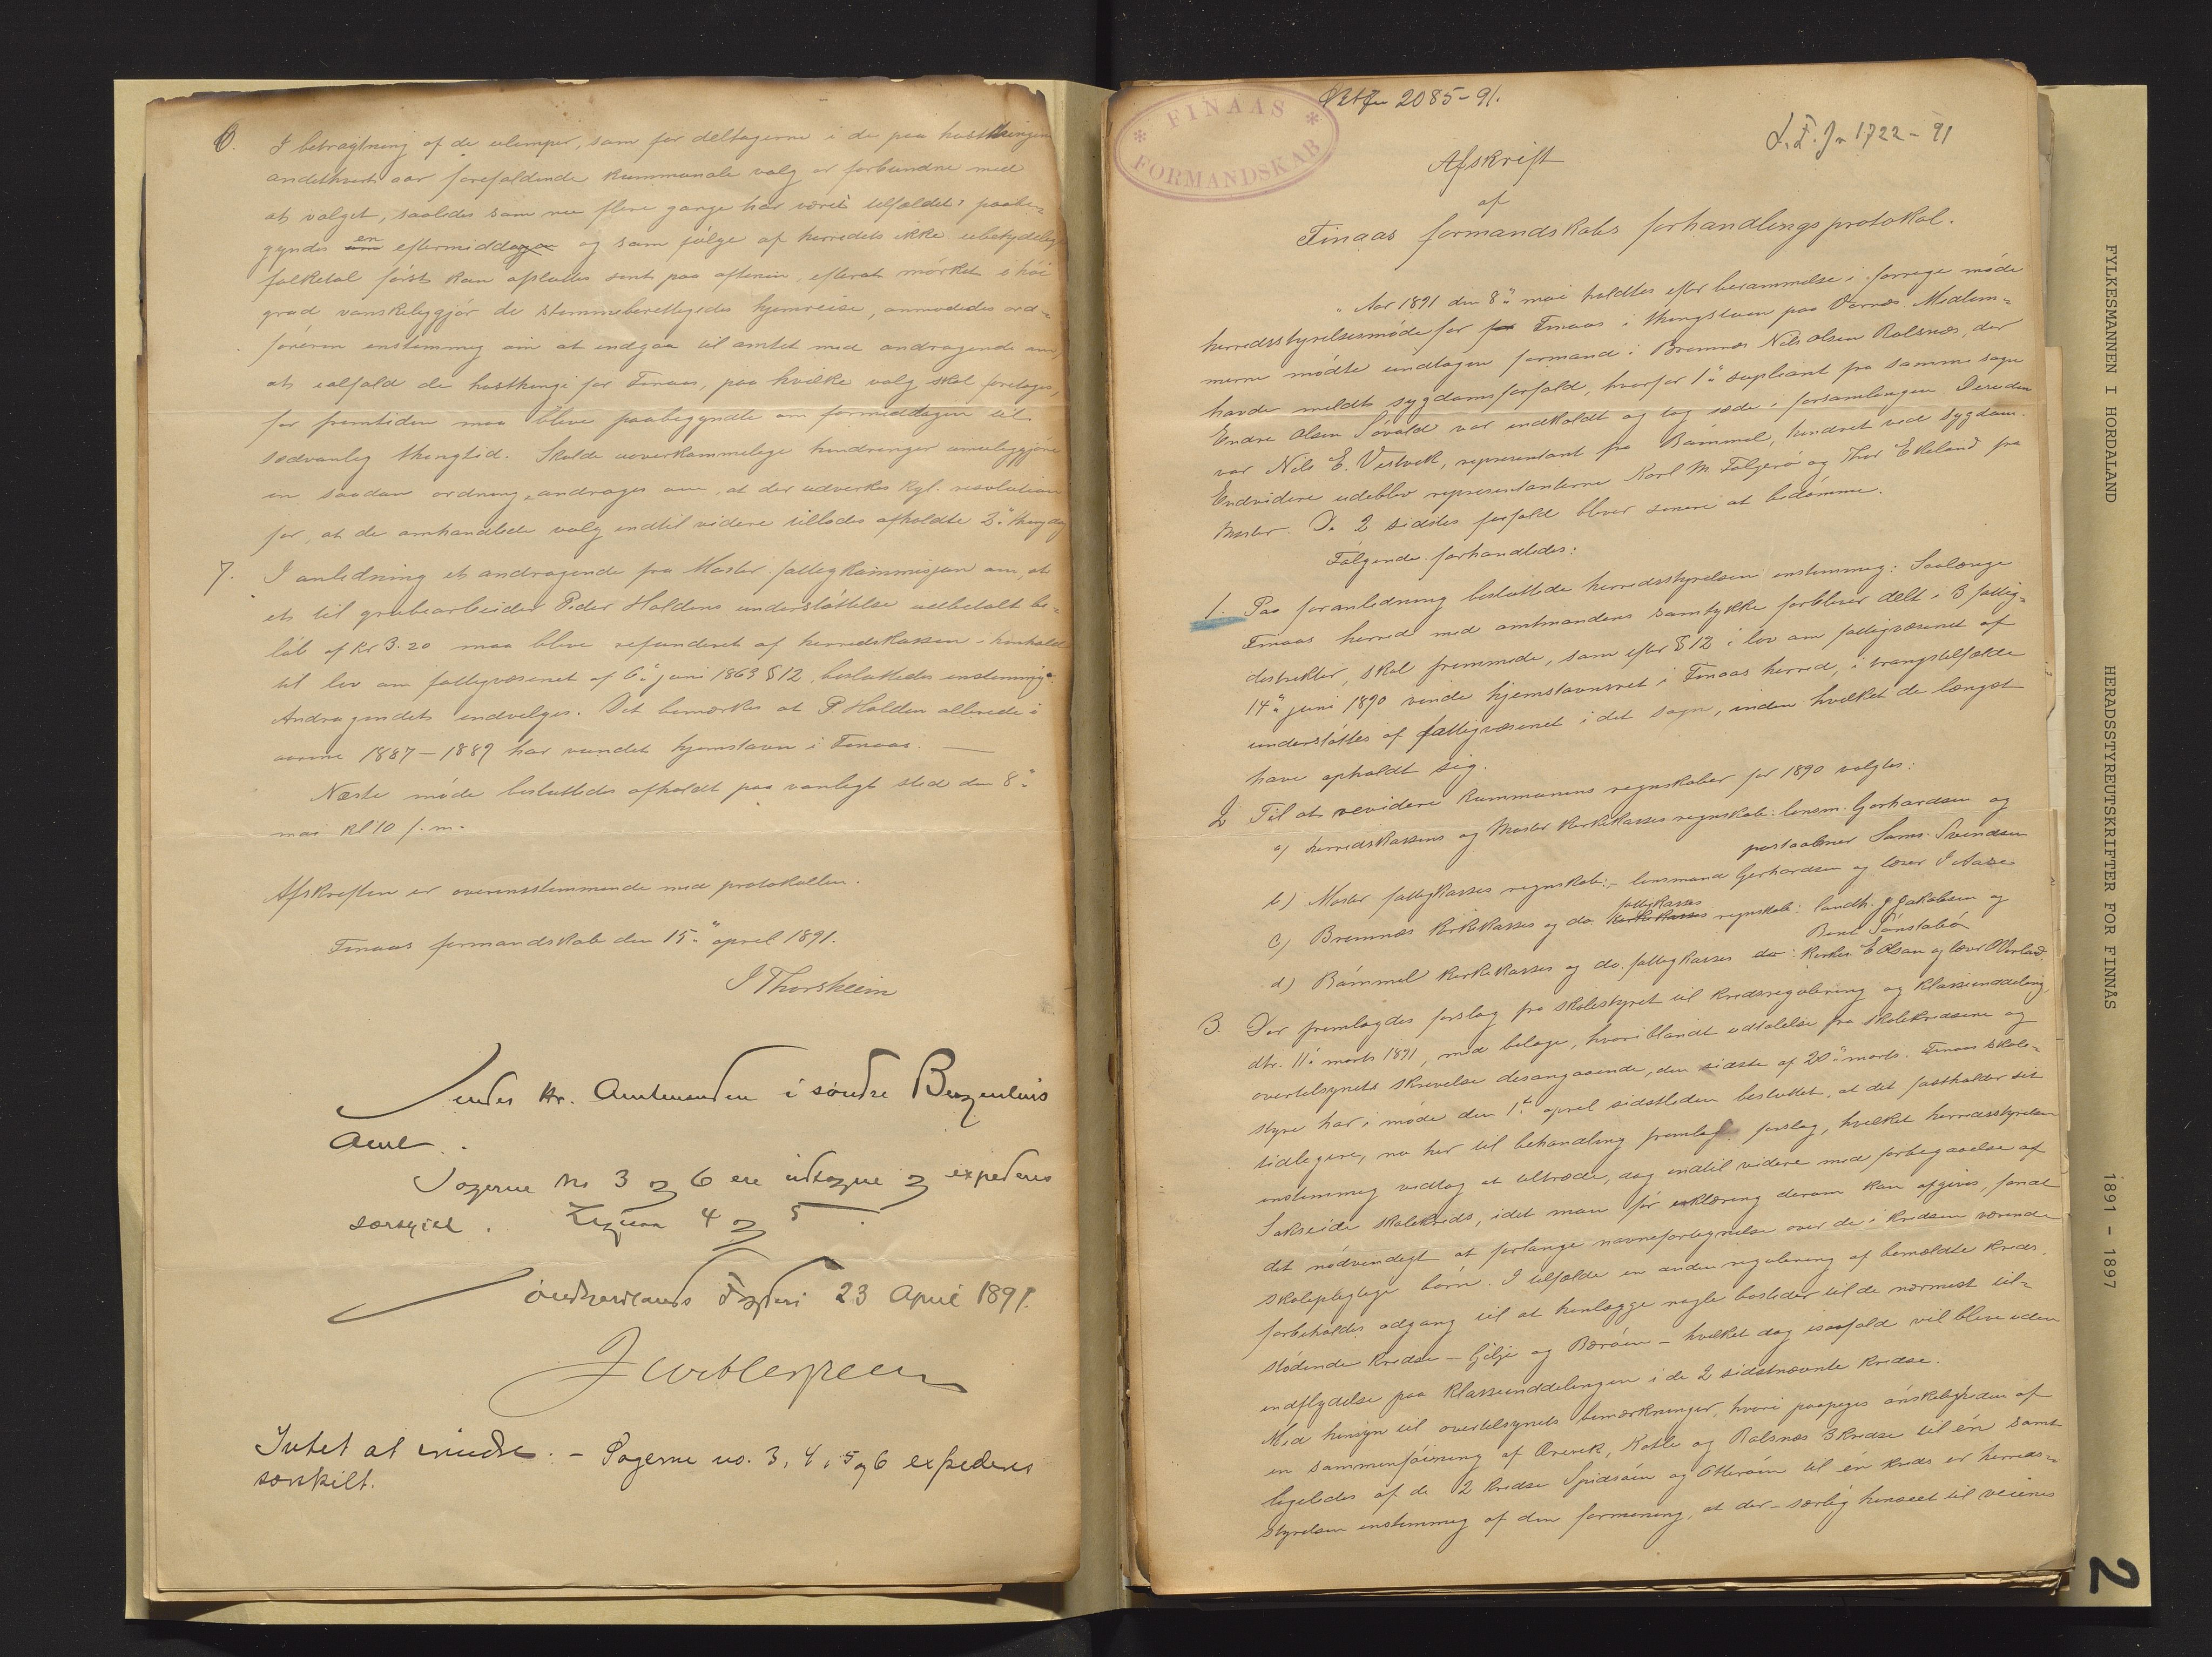 6. I betragtning af de ulemper, som for deltagerne i de paa høstthingene
andethvert aar forefaldende kommunale valg er forbundne med
at valget, saaledes som nu flere gange har været tilfældet, paabe-
gyndes en eftermiddag og som følge af herredets ikke ubetydelige
folketal først kan afsluttes sent paa aftenen, efterat mørket i høi
grad vanskeliggjør de stemmeberettigedes hjemreise, anmodedes ord-
føreren enstemmig om at indgaa til amtet med andragende om,
at ialfald de høstthinge for Finaas, paa hvilke valg skal foretages,
for fremtiden maa blive paabegyndte om formiddagen til
sædvanlig thingtid. Skulde uoverkommelige hindringer umuliggjøre
en saadan ordning, andrages om, at der udverkes kgl. resolution
for, at de omhandlede valg indtil videre tillades afholdte 2den thingdag
7. I anledning et andragende fra Moster fattigkommisjon om, at
et til grubearbeider Peder Holdens understøttelse udbetalt be-
løb af kr 3.20 maa blive refunderet af herredskassen i henhold
til lov om fattigvæsenet af 6te juni 1863 § 12, besluttedes enstemmig:
Andragendet indvilges. Det bemærkes at P. Holden allerede i
aarene 1887–1889 har vundet hjemstavn i Finaas. —
Næste møde besluttedes afholdt paa vanligt sted den 8de
mai kl 10 f.m.
Afskriften er overensstemmende med protokollen.
Finaas formandskab den 15de april 1891.
J Thorsheim
Sendes Hr. Amtmanden i søndre Bergenhus
Amt.
Sagerne No 3 og 6 ere udtagne og expederes
særskilt. Ligesaa 4 og 5.
Søndhordlands Fogderi 23 April 1891.
Intet at erindre. – Sagerne no. 3, 4, 5 og 6 expederes
særskilt.
FINAAS
FORMANDSKAB
2085-91.
S.F. Jn 1722-91
Afskrift
af
Finaas formandskabs forhandlingsprotokol.
Aar 1891 den 8de mai holdtes efter berammelse i forrige møde
herredsstyrelsesmøde for Finaas i thingstuen paa Vornæs. Medlem-
merne mødte undtagen formand i Bremnæs Nils Olsen Rolsnæs, der
havde meldt sygdomsforfald, hvorfor 1ste supleant fra samme sogn
Endre Olsen Søvold var indkaldt og tog sæde i forsamlingen. Desuden
var Nils E. Vestvik, representant fra Bømmel, hindret ved sygdom.
Endvidere udeblev representanterne Karl M. Folgerø og Thor Ekeland fra
Moster. De 2 sidstes forfald bliver senere at bedømme.
Følgende forhandledes:
1. Paa foranledning besluttede herredsstyrelsen enstemmig: Saalænge
Finaas herred med amtmandens samtykke forbliver delt i 3 fattig-
distrikter, skal fremmede, som efter § 12 i lov om fattigvæsenet af
14de juni 1890 vinde hjemstavnsret i Finaas herred, i trangstilfælde
understøttes af fattigvæsenet i det sogn, inden hvilket de længst
have opholdt sig.
2 Til at revidere kommunens regnskaber for 1890 valgtes:
a) Herredskassens og Moster kirkekasses regnskab: lensm. Gerhardsen og
postaabner Sams. Svendsen
b) Moster fattigkasses regnskab: – lensmand Gerhardsen og lærer I Aase
c) Bremnæs kirkekasses og do. fattigkasses regnskab: landh. J Jakobsen og
Bent Sønstabø
d) Bømmel kirkekasses og do. fattigkasses do: kirkes. E Olsen og lærer O Vorland.
3. Der fremlagdes forslag fra skolestyret til kredsregulering og klasseinddeling,
dtr. 11te marts 1891, med bilage, hvoriblandt udtalelse fra skolekredsene og
overtilsynets skrivelse desangaaende, den sidste af 20de marts. Finaas skole-
styre har i møde den 1ste april sidstleden besluttet, at det fastholder sit
tidligere, nu her til behandling fremlagte forslag, hvilket herredsstyrelsen
enstemmig vedtog at tiltræde, dog indtil videre med forbigaaelse af
Sakseide skolekreds, idet man før erklæring derom kan afgives, fandt
det nødvendigt at forlange navnefortegnelse over de i kredsen værende
skolepligtige børn. I tilfælde en anden regulering af bemeldte kreds,
forbeholdes adgang til at henlægge nogle bosteder til de nærmest til-
stødende kredse – Gilje og Børøen – hvilket dog isaafald vil blive uden
indflydelse paa klasseinddelingen i de 2 sidstnævnte kredse.
Med hensyn til overtilsynets bemærkninger, hvori paapeges ønskeligheden af
en sammenføining af Ørevik, Kotle og Rolsnæs 3 kredse til én samt
ligeledes af de 2 kredse Spidsøen og Otterøen til én kreds er herreds-
styrelsen enstemmig af den formening, at der – særlig henseet til veienes
FYLKESMANNEN I HORDALAND
HERADSSTYREUTSKRIFTER FOR FINNÅS
1891 - 1897
2